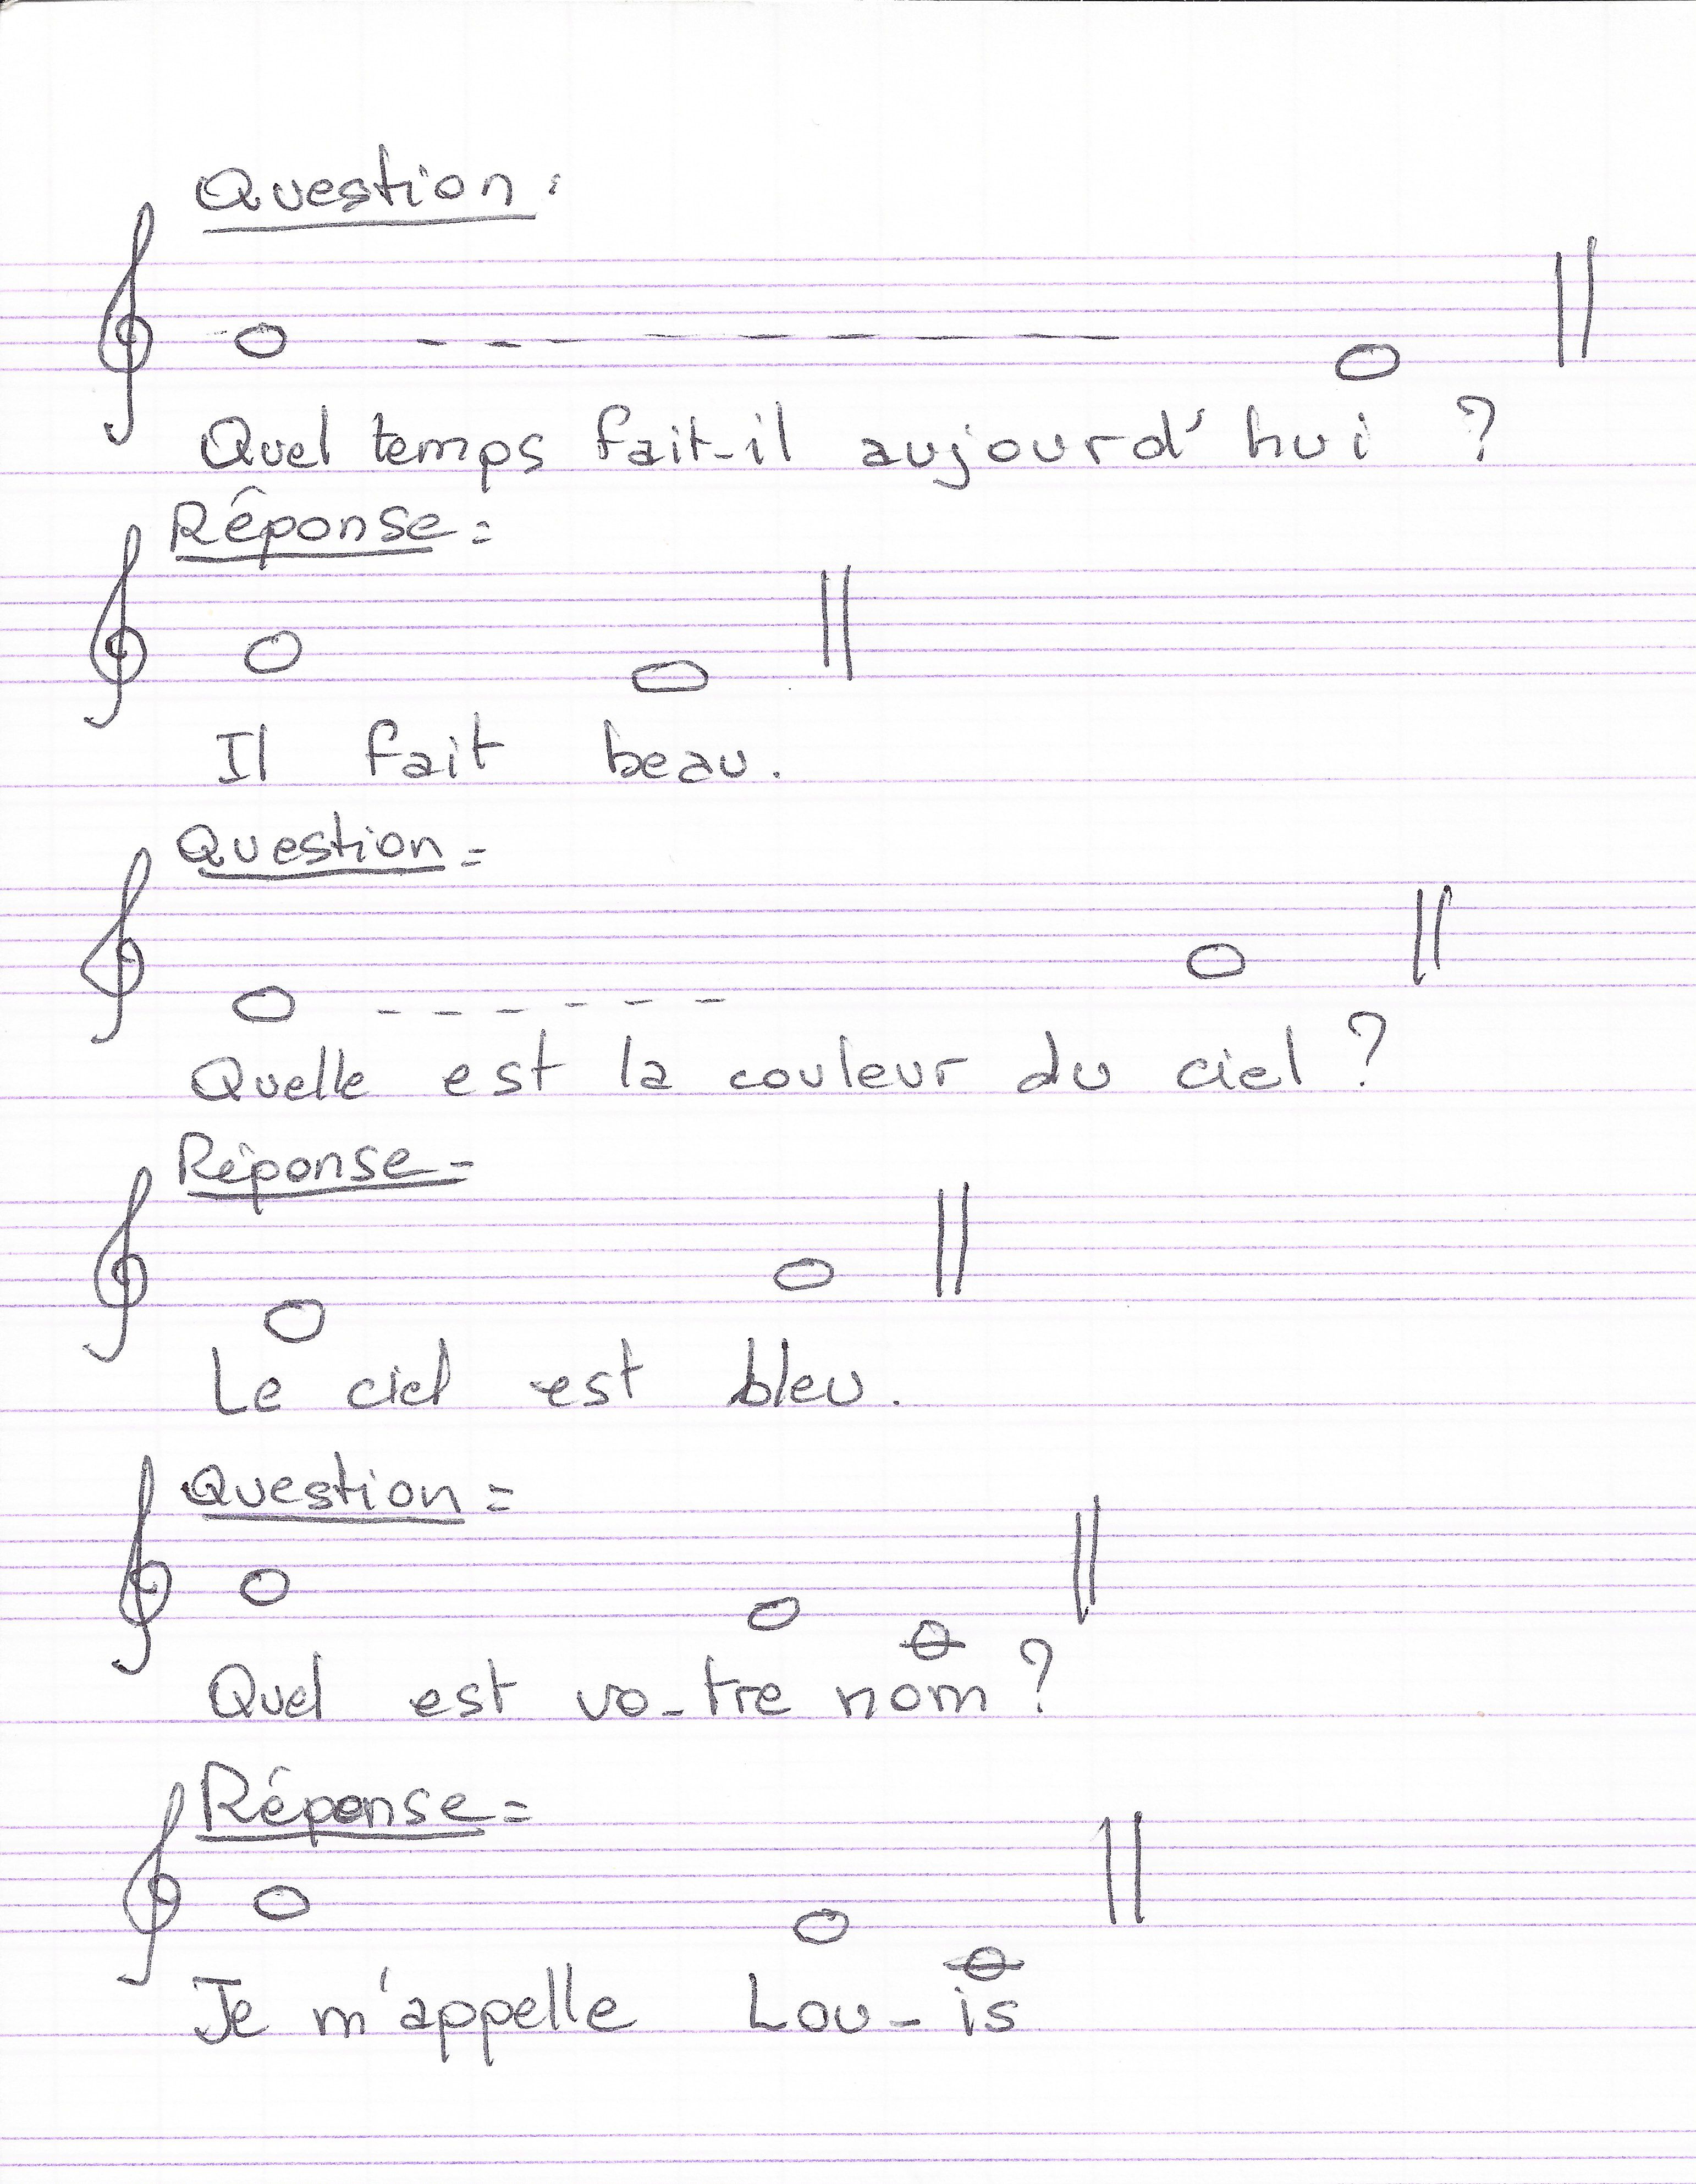 Question :
Quel temps fait-il aujourd'hui ?
Rêponse :
Il fait beau.
Question :
Quelle est la couleur du ciel ?
Réponse :
Le ciel est bleu.
Question :
Quel est vo-tre nom ?
Réponse :
Je m'appelle Lou-is